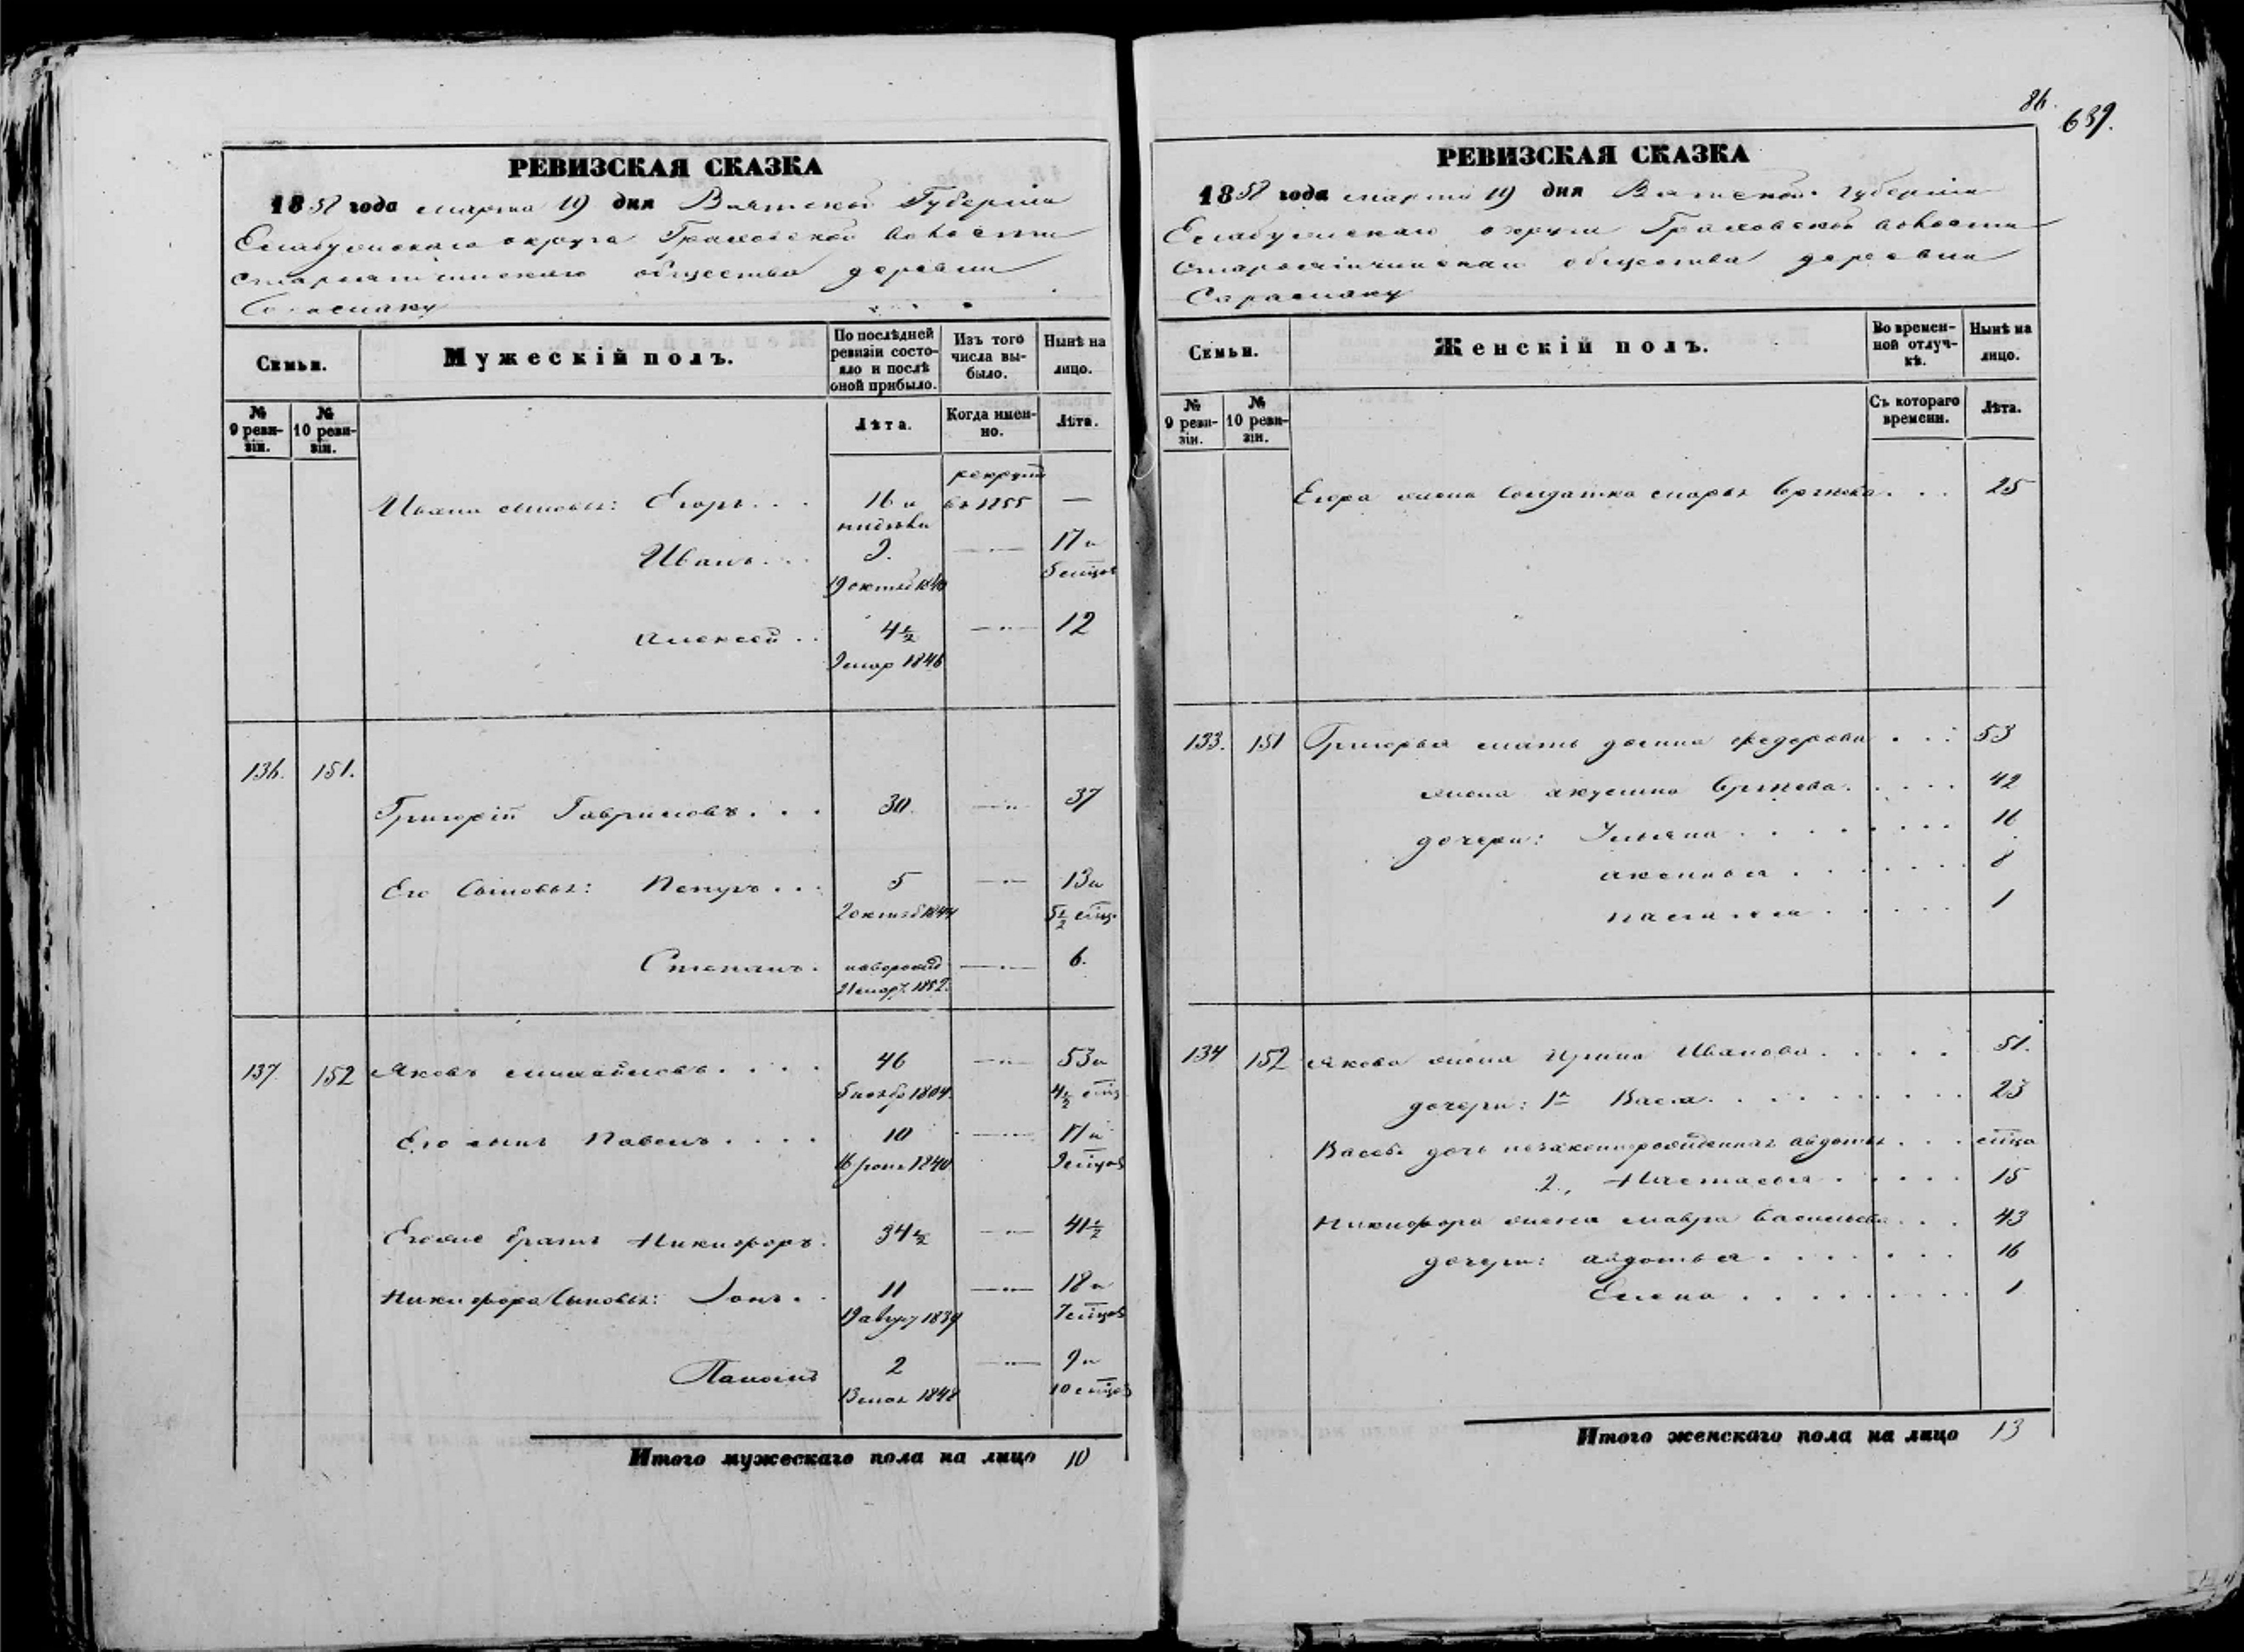 86.
639.
РЕВИЗСКАЯ СКАЗКА
1858 года марта 19 дня Вятской Губерніи
Елабужскаго округа Граховской волости
общества деревни
Семьи.
Мужескій полъ.
По послѣдней ревизіи состояло и послѣ оной прибыло.
Изъ того числа выбыло.
Нынѣ на лицо.
№ 9 ревизіи.
№ 10 ревизіи.
Лѣта.
Когда именно.
Лѣта.
Ивана сыновья: Егоръ . . . 16 и рекрутъ въ 1855 —
Иванъ . . . 9. — 17 и
19 октяб 1840 5 мцов
Алексей . . 4½ — 12
9 мар 1846
136. 151.
Григорій Гавриловъ . . . 30. — 37
Его Сыновья: Петръ . . . 5 — 13 и
2 октяб 1844 5½ мцъ
Степанъ . новорожд — 6.
21 мар 1852.
137. 152 Яковъ Михайловъ . . . . 46 — 53 и
5 нояб 1804. 4½ мцъ
Его сынъ Павелъ . . . . 10 — 17 и
16 1840 9 мцов
Его же братъ Никифоръ . 34½ — 41½
Никифора Сыновья: . . 11 — 18 и
19 август 1839 7 мцов
2 — 9 и
13 мая 1848 10 мцов
Итого мужескаго пола на лицо 10
РЕВИЗСКАЯ СКАЗКА
1858 года марта 19 дня Вятской Губерніи
Елабужскаго округа Граховской волости
общества деревни
Семьи.
Женскій полъ.
Во временной отлучкѣ.
Нынѣ на лицо.
№ 9 ревизіи.
№ 10 ревизіи.
Съ котораго времени.
Лѣта.
Егора жена Солдатка Марья Сергѣева . . . 25
133. 151 Григорья мать Федорова . . . 53
жена Акулина Сергѣева . . . . . 42
дочери: Ульяна . . . . . . . . 11
Аксинья . . . . . . . 8
. . . . . 1
134 152 Якова жена Ирина Иванова . . . . . 51.
дочери: 1я Васса . . . . . . . . . 23
Вассы дочь незаконнорожденная Авдотья . . . мца
2., Настасья . . . . . 15
Никифора жена Мавра Васильева . . . 43
дочери: Авдотья . . . . . . . 16
Елена . . . . . . . . . 1
Итого женскаго пола на лицо 13